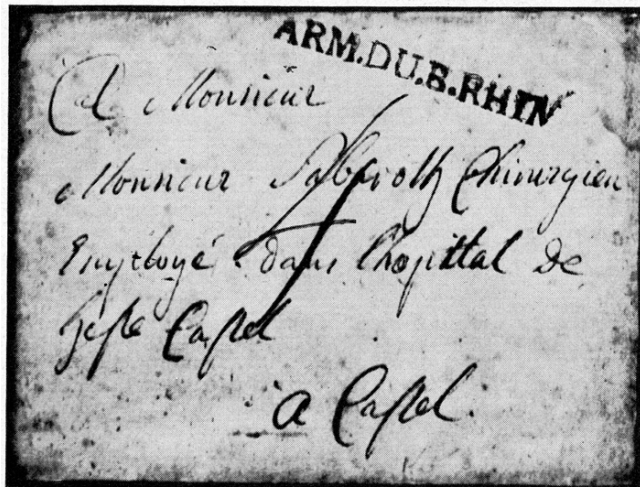 ARM.DU.B.RHIN
A Monsieur
Monsieur Chirurgien
Employé dans lhopittal de
hesse Cassel
a Cassel.